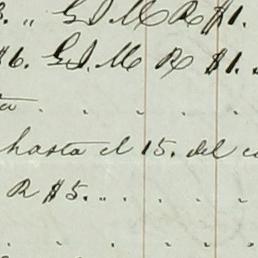 3. „ G. I. M. R $1.
$6. G. I. M. R $1.
hasta el 15. del
R $5. „